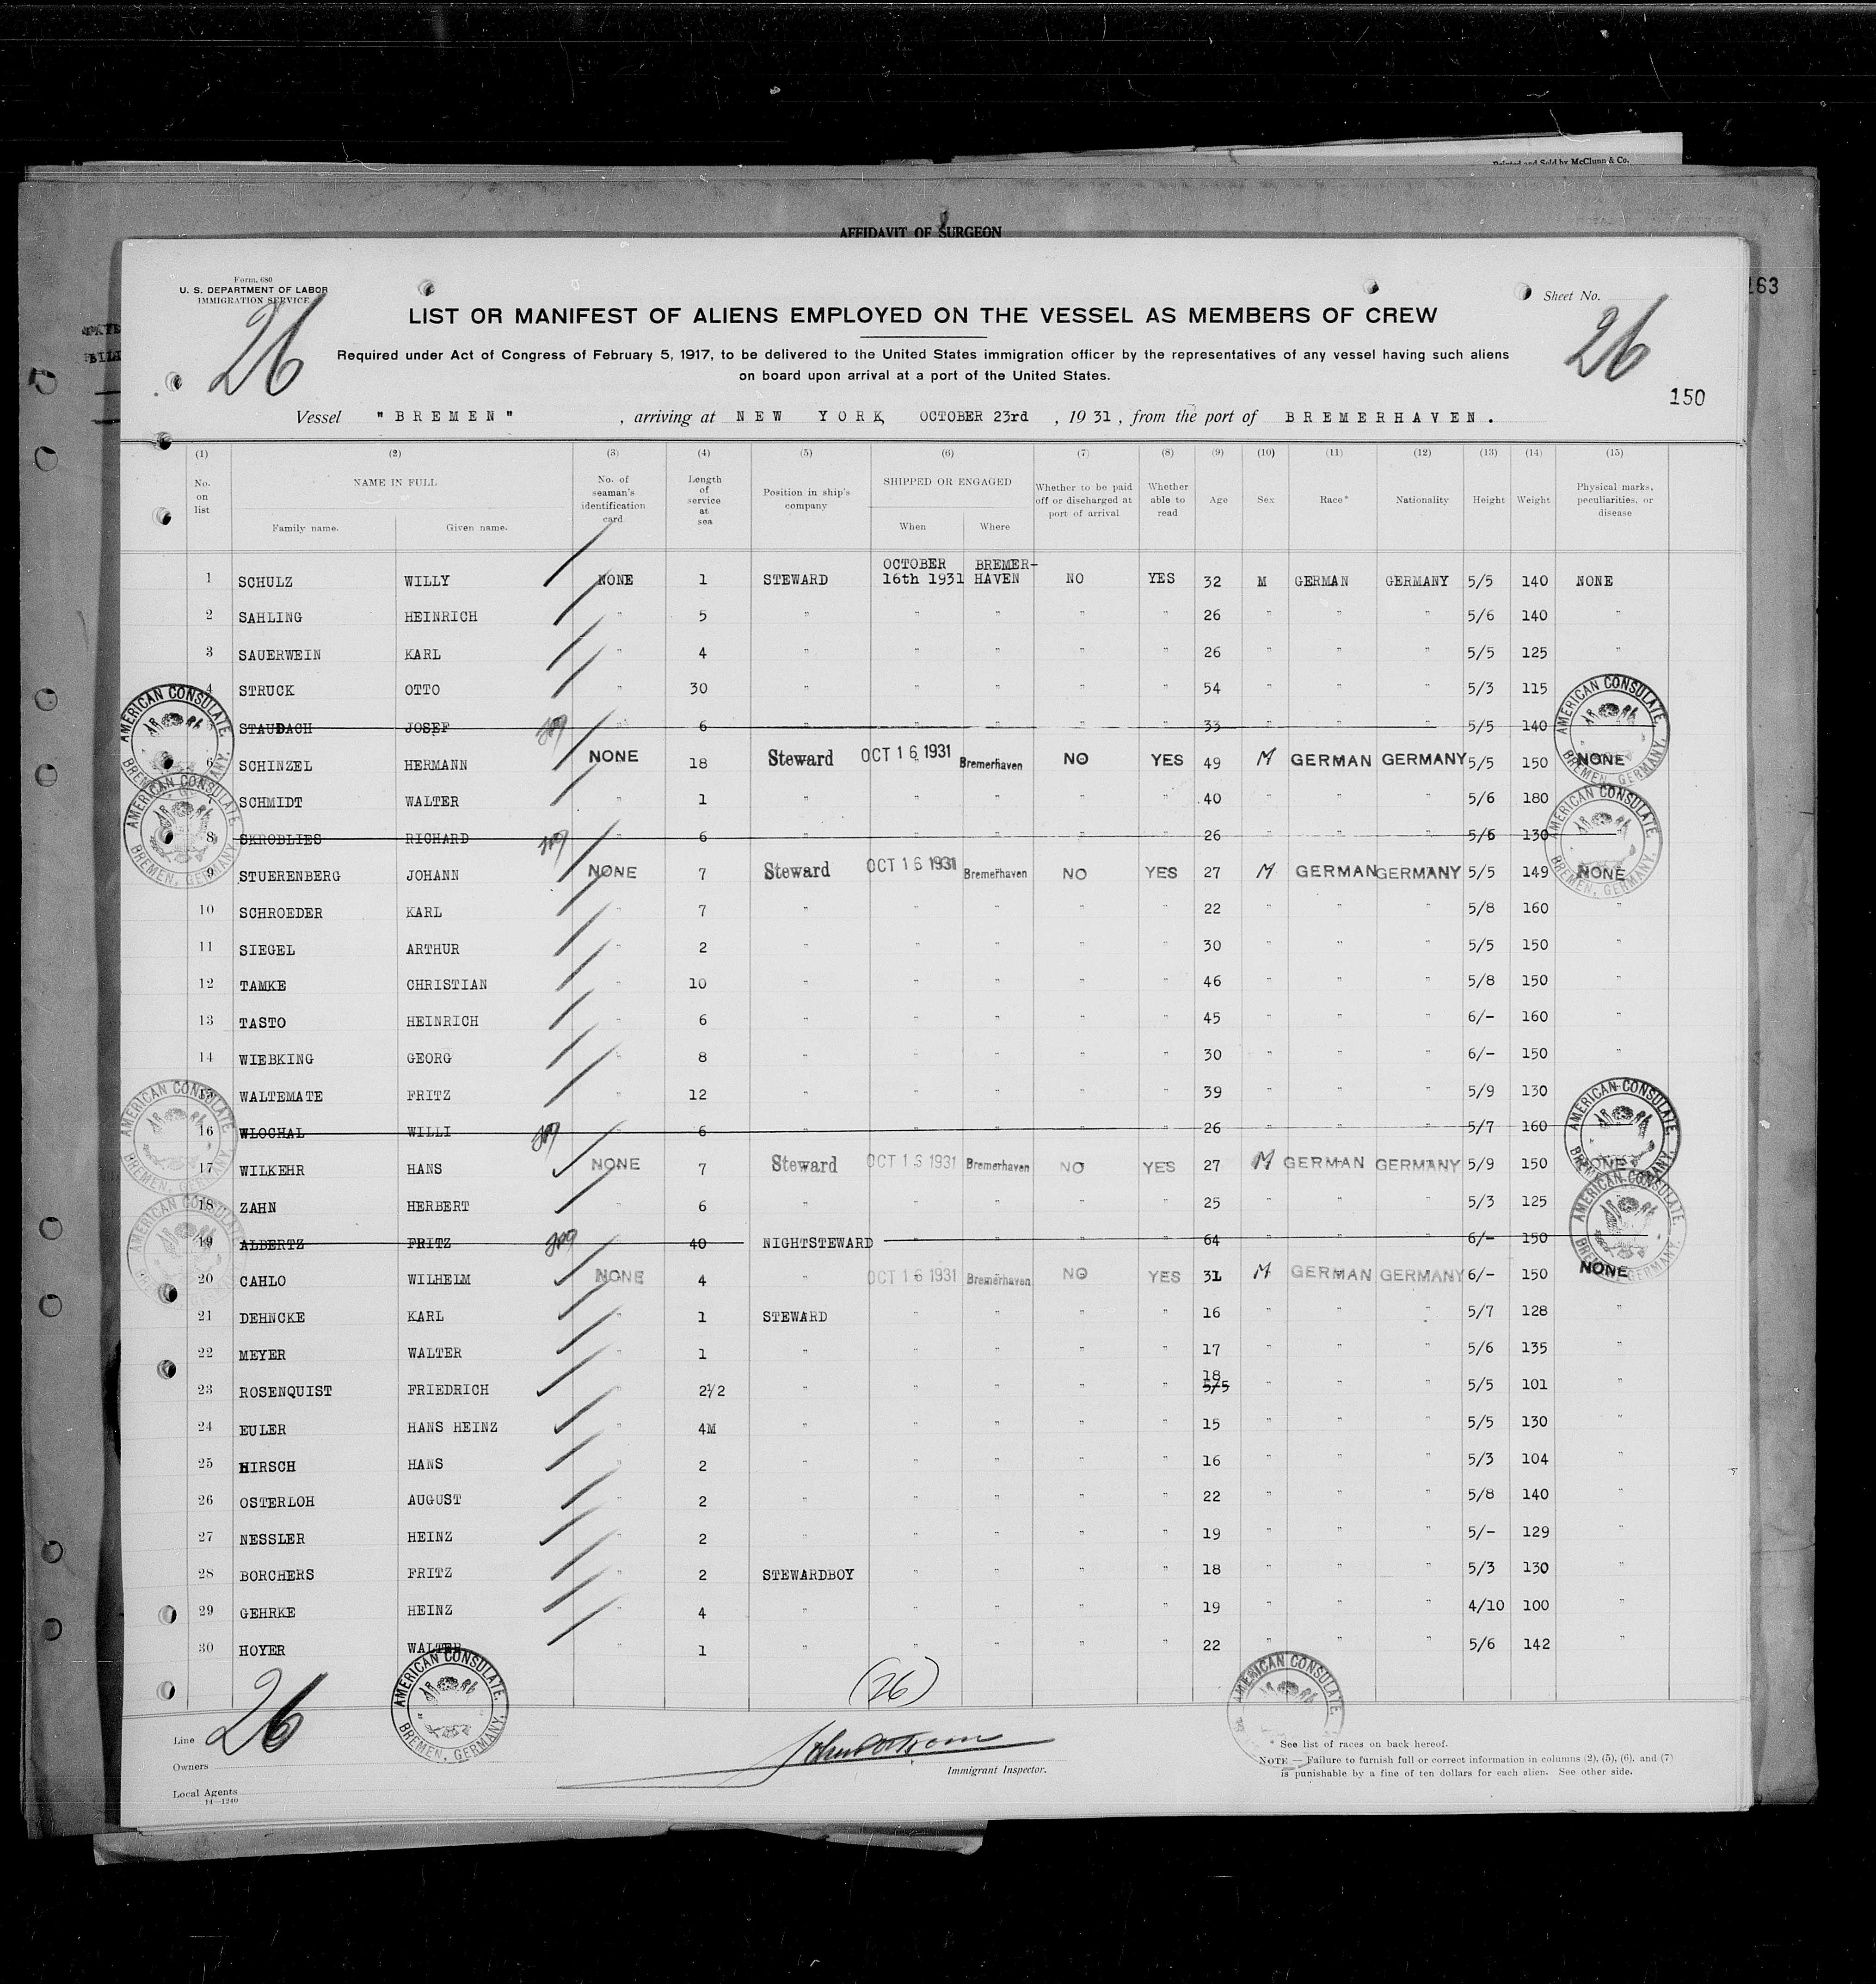 Printed and Sold by McClunn & Co.
AFFIDAVIT OF SURGEON
163
Form. 680
U. S. DEPARTMENT OF LABOR
IMMIGRATION SERVICE
Sheet No.
26
26
LIST OR MANIFEST OF ALIENS EMPLOYED ON THE VESSEL AS MEMBERS OF CREW
Required under Act of Congress of February 5, 1917, to be delivered to the United States immigration officer by the representatives of any vessel having such aliens
on board upon arrival at a port of the United States.
150
Vessel "BREMEN", arriving at NEW YORK, OCTOBER 23rd, 1931, from the port of BREMERHAVEN.
(1) (2) (3) (4) (5) (6) (7) (8) (9) (10) (11) (12) (13) (14) (15)
No. on list NAME IN FULL Family name. Given name. No. of seaman's identification card Length of service at sea Position in ship's company SHIPPED OR ENGAGED When Where Whether to be paid off or discharged at port of arrival Whether able to read Age Sex Race* Nationality Height Weight Physical marks, peculiarities, or disease
1 SCHULZ WILLY NONE 1 STEWARD OCTOBER 16th 1931 BREMER-HAVEN NO YES 32 M GERMAN GERMANY 5/5 140 NONE
2 SAHLING HEINRICH " 5 " " " " " 26 " " " 5/6 140 "
3 SAUERWEIN KARL " 4 " " " " " 26 " " " 5/5 125 "
4 STRUCK OTTO " 30 " " " " " 54 " " " 5/3 115
STAUDACH JOSEF " 6 " " " " " 33 " " " 5/5 140
6 SCHINZEL HERMANN NONE 18 Steward OCT 16 1931 Bremerhaven NO YES 49 M GERMAN GERMANY 5/5 150 NONE
7 SCHMIDT WALTER " 1 " " " " " 40 " " " 5/6 180
8 SKROBLIES RICHARD " 6 " " " " " 26 " " " 5/6 130
9 STUERENBERG JOHANN NONE 7 Steward OCT 16 1931 Bremerhaven NO YES 27 M GERMAN GERMANY 5/5 149 NONE
10 SCHROEDER KARL " 7 " " " " " 22 " " " 5/8 160 "
11 SIEGEL ARTHUR " 2 " " " " " 30 " " " 5/5 150 "
12 TAMKE CHRISTIAN " 10 " " " " " 46 " " " 5/8 150 "
13 TASTO HEINRICH " 6 " " " " " 45 " " " 6/- 160 "
14 WIEBKING GEORG " 8 " " " " " 30 " " " 6/- 150 "
15 WALTEMATE FRITZ " 12 " " " " " 39 " " " 5/9 130
16 WLOCHAL WILLI " 6 " " " " " 26 " " " 5/7 160
17 WILKEHR HANS NONE 7 Steward OCT 16 1931 Bremerhaven NO YES 27 M GERMAN GERMANY 5/9 150 NONE
18 ZAHN HERBERT " 6 " " " " " 25 " " " 5/3 125
19 ALBERTZ FRITZ 40 NIGHTSTEWARD " " " " 64 " " " 6/- 150
20 CAHLO WILHELM NONE 4 " OCT 16 1931 Bremerhaven NO YES 31 M GERMAN GERMANY 6/- 150 NONE
21 DEHNCKE KARL " 1 STEWARD " " " " 16 " " " 5/7 128 "
22 MEYER WALTER " 1 " " " " " 17 " " " 5/6 135 "
23 ROSENQUIST FRIEDRICH " 2½ " " " " " 18 5/5 " " " 5/5 101 "
24 EULER HANS HEINZ " 4M " " " " " 15 " " " 5/5 130 "
25 HIRSCH HANS " 2 " " " " " 16 " " " 5/3 104 "
26 OSTERLOH AUGUST " 2 " " " " " 22 " " " 5/8 140 "
27 NESSLER HEINZ " 2 " " " " " 19 " " " 5/- 129 "
28 BORCHERS FRITZ " 2 STEWARDBOY " " " " 18 " " " 5/3 130 "
29 GEHRKE HEINZ " 4 " " " " " 19 " " " 4/10 100 "
30 HOYER WALTER " 1 " " " " " 22 " " " 5/6 142 "
AMERICAN CONSULATE. BREMEN, GERMANY.
AMERICAN CONSULATE. BREMEN, GERMANY.
AMERICAN CONSULATE. BREMEN, GERMANY.
AMERICAN CONSULATE. BREMEN, GERMANY.
AMERICAN CONSULATE. BREMEN, GERMANY.
AMERICAN CONSULATE. BREMEN, GERMANY.
AMERICAN CONSULATE. BREMEN, GERMANY.
AMERICAN CONSULATE. BREMEN, GERMANY.
AMERICAN CONSULATE. BREMEN, GERMANY.
AMERICAN CONSULATE.
(26)
26
Line
Owners
Local Agents
14—1240
Immigrant Inspector.
* See list of races on back hereof.
NOTE.—Failure to furnish full or correct information in columns (2), (5), (6), and (7)
is punishable by a fine of ten dollars for each alien. See other side.